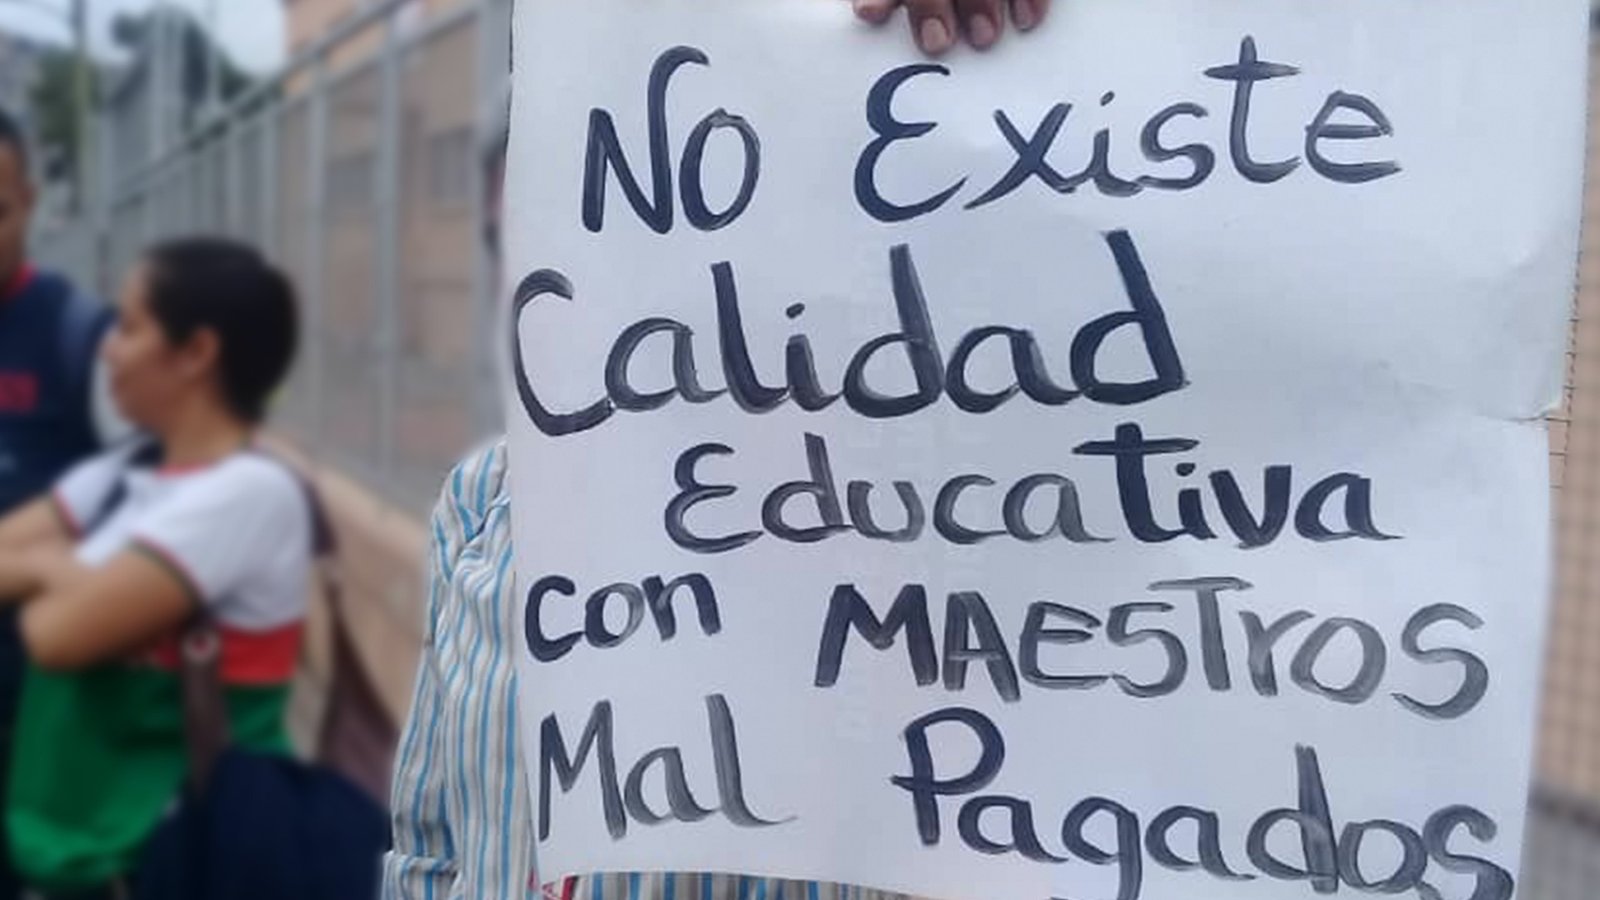 No Existe
Calidad
Educativa
con MAESTros
Mal Pagados